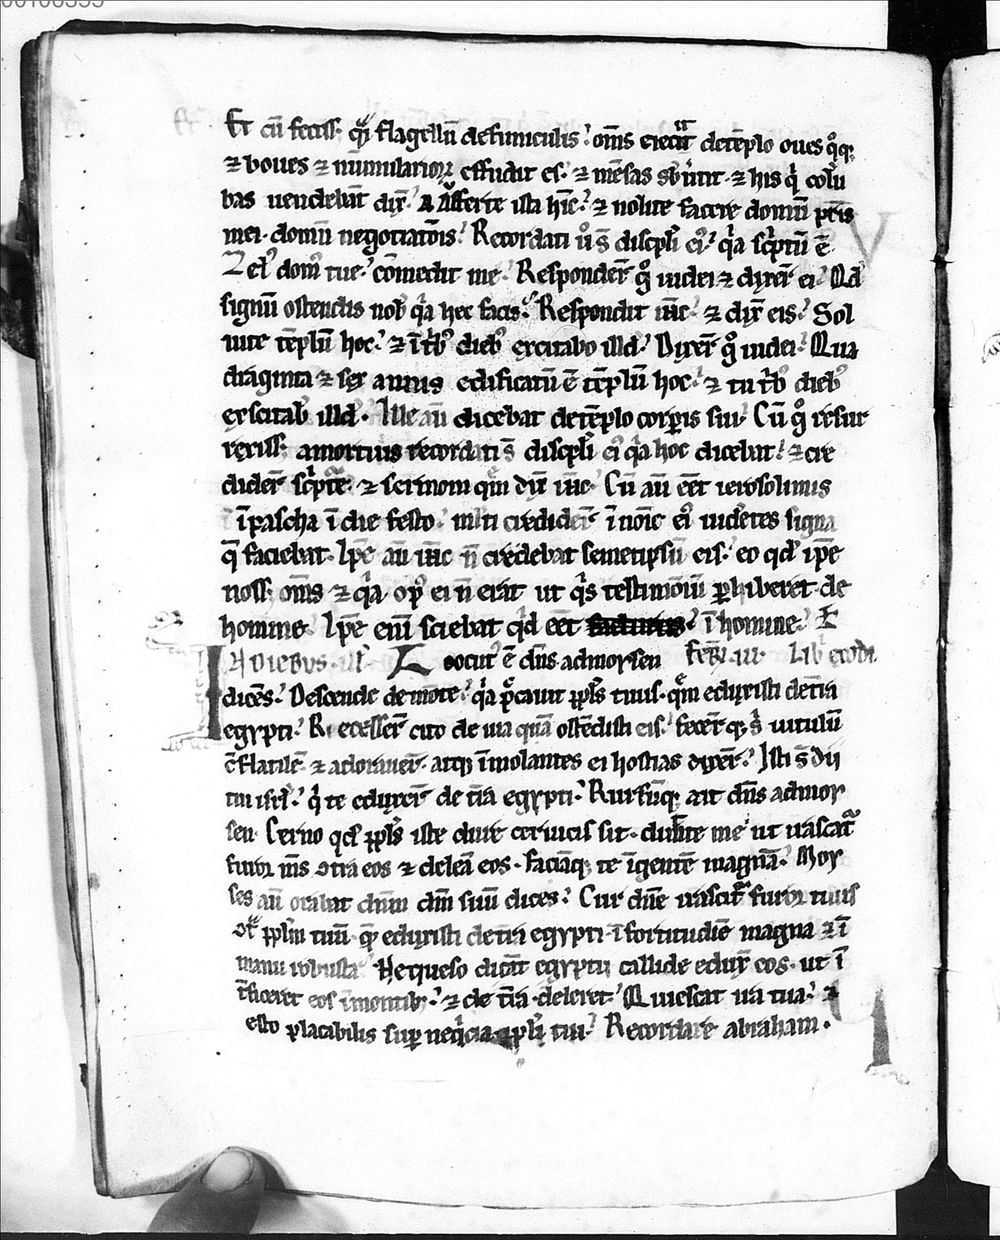 00106355
Et cū feciss; q̄i flagellū de funiculis? om̄s eiecit de tēplo oues q̊q;
⁊ boues ⁊ nūmularioꝝ effudit es. ⁊ mēsas sb̄utit. ⁊ his q̇ colū
bas uendebāt dix̄. Auferte ista hīc. ⁊ nolite facere domū pr̄is
mei. domū negotiatōis. Recordati ů s̄ discip̄li ei᷒ q̇a sc̄ptū ē.
Zel᷒ dom᷒ tue. cōmedit me. Responder̄ g̊ iudei ⁊ dixer̄ ei. Qd̄
signū ostendis nob̄ q̇a hec facis. Respondit ih̄c. ⁊ dix̄ eis. Sol
uite tēplū hoc. ⁊ ī t̄b᷒ dieb᷒ excitabo illd̄. Dixer̄ g̊ iudei. Qua
draginta ⁊ sex annis edificatū ē tēplū hoc. ⁊ tu t̄b᷒ dieb᷒
exscitab̄ illd̄. Ille aū dicebat de tēplo corꝑis sui. Cū g̊ resur
rexiss; a mortuis recordati s̄ discip̄li ei᷒ q̇a hoc dicebat. ⁊ cre
dider̄ sc̄pt̄e. ⁊ sermoni quē dix̄ ih̄c. Cū aū eēt ierosolimis
ī pascha ī die festo. m̄lti credider̄ ī noīe ei᷒ uidētes signa
q̄ faciebat. Ip̄e aū ih̄c n̄ credebat semetipsū eis. eo qd̄ ip̄e
noss; om̄s ⁊ q̇a op᷒ ei n̄ erat ut q̇s testimōiū ꝑhiberet de
homine. Ip̄e eni sciebat q̇d eēt ī homine.
IN DIEBUS ill̄. Locut᷒ ē dn̄s ad moysen Fer̄ .iii. Lib̄ exodi
dicēs. Descende de mōte. q̇a peccauit pp̄ls tuus. quē eduxisti de t̄ra
egypti. Recesser̄ cito de uia quā ostēdisti eis. fecer̄ q; s̄ uitulū
cōflatilē. ⁊ adorauer̄. atq; īmolantes ei hostias dixer̄. Isti s̄ dii
tui isr̄l. q̇ te eduxer̄ de t̄ra egypti. Rursūq; ait dn̄s ad moy
sen. Cerno qd̄ pp̄ls iste dure ceruicis sit. dimitte me ut irascat᷑
furor m̄s ꝯtra eos ⁊ deleā eos. faciāq; te ī gentē magnā. Moy
ses aū orabat dn̄m dm̄ suū dicēs. Cur dn̄e irascit᷑ furor tuus
ꝯt᷑ pp̄lm tuū. quē eduxisti de t̄ra egypti. ī fortitudīe magna ⁊ ī
manu robusta. Ne queso dicāt egyptii callide edux̄ eos. ut ī
t̄ficeret eos ī montib;. ⁊ de t̄ra deleret. Quiescat ira tua. ⁊
esto placabilis suꝑ neq̇cia pp̄li tui. Recordare abraham.